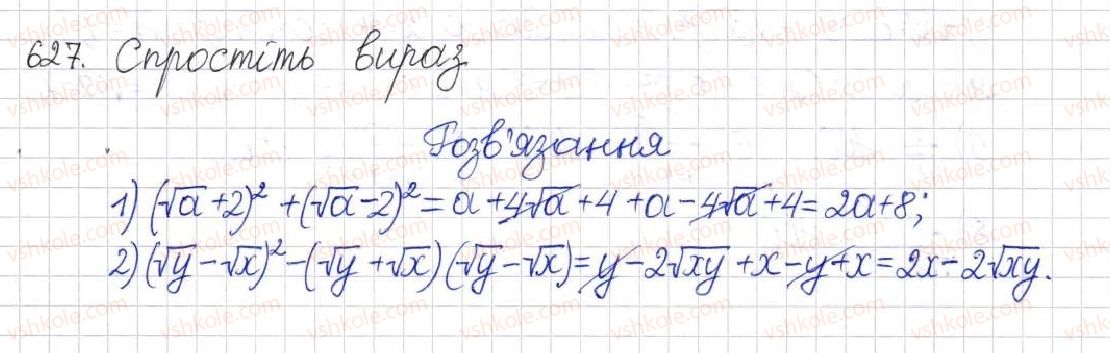 627. Спростіть вираз
Розв'язання
1) (√a + 2)² + (√a - 2)² = a + 4√a + 4 + a - 4√a + 4 = 2a + 8;
2) (√y - √x)² - (√y + √x)(√y - √x) = y - 2√xy + x - y + x = 2x - 2√xy.
vshkole.com